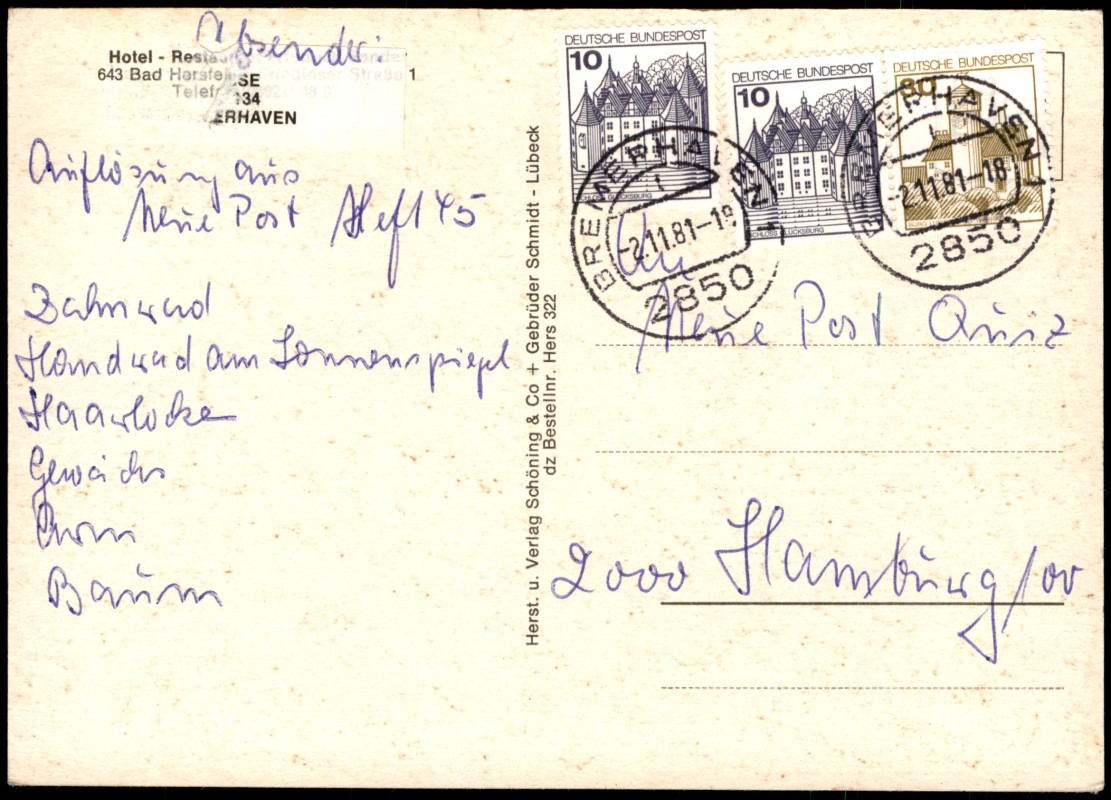 Absender:
Hotel - Resta
643 Bad Hersfe
Straße 1
Telef
SE
134
ERHAVEN
Auflösung aus
Neue Post Heft 45
Zahnrad
Handrad am Sonnenspiegel
Haarlocke
Gewächs
Arm
Baum
Herst. u. Verlag Schöning & Co + Gebrüder Schmidt - Lübeck
dz Bestellnr. Hers 322
DEUTSCHE BUNDESPOST
10
SCHLOSS GLÜCKSBURG
DEUTSCHE BUNDESPOST
10
SCHLOSS GLÜCKSBURG
DEUTSCHE BUNDESPOST
BREMERHAVEN 1
-2.11.81-18
2850
BREMERHAVEN 1
-2.11.81-18
2850
An
Neue Post Quiz
2000 Hamburg 100